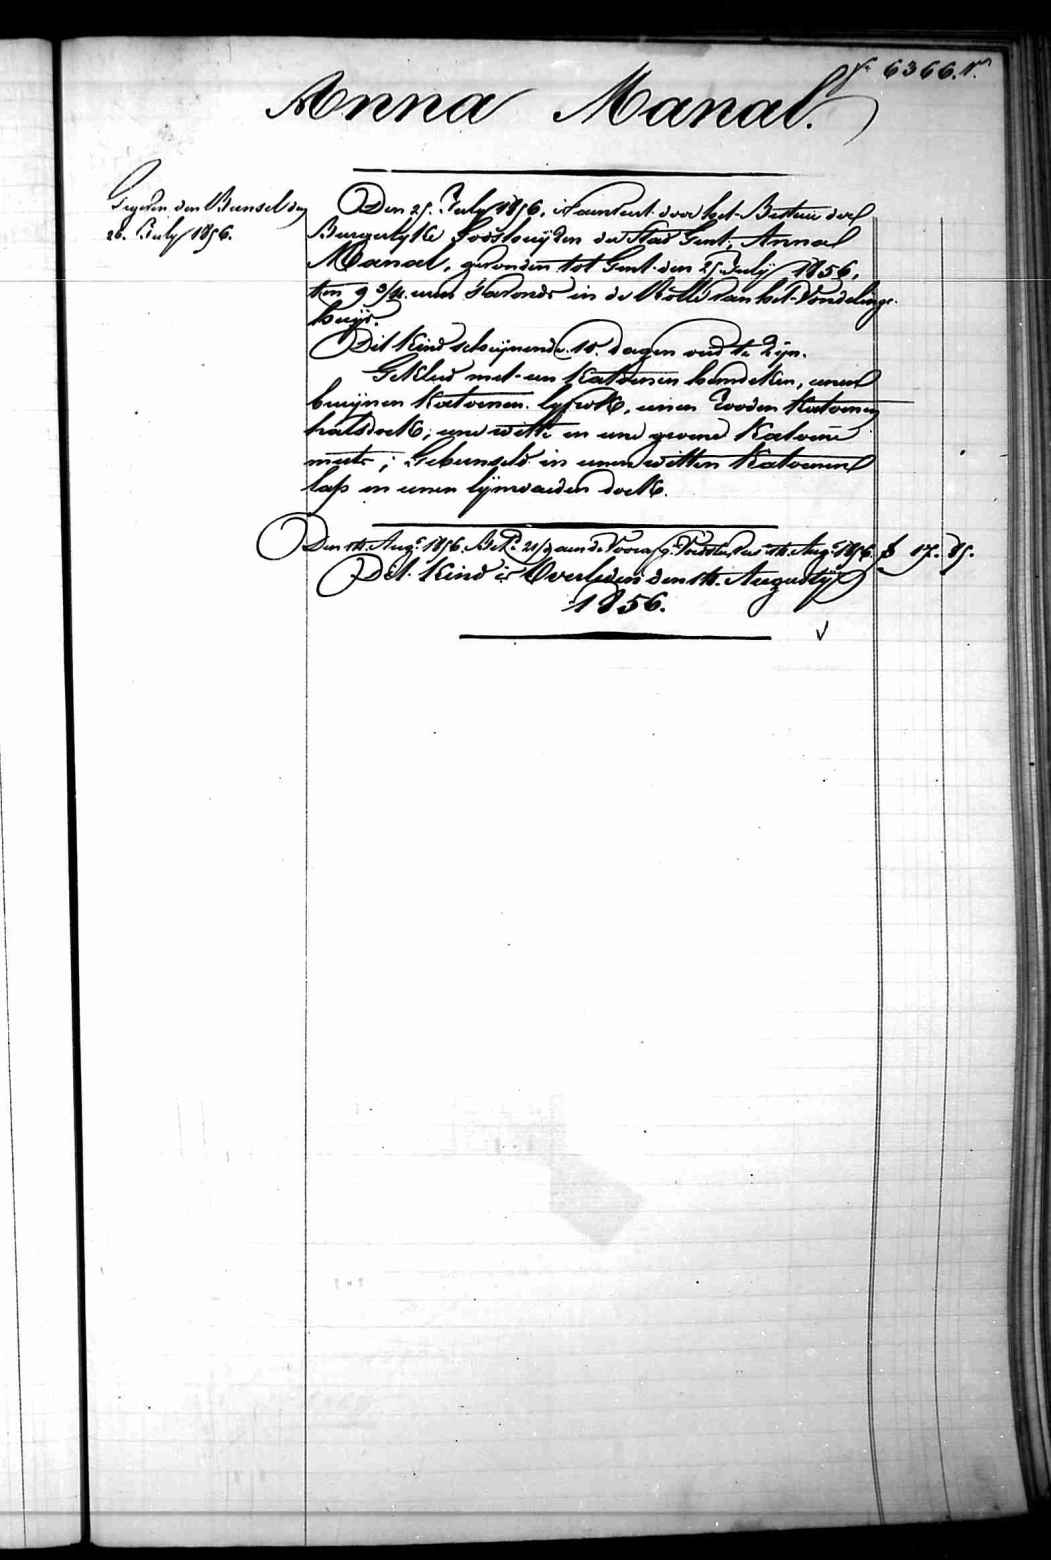 6366.
Anna Manal.
Gegeven den Bunsel den
26. July 1856.
Den 25. July 1856, is aanveert door het Bestuur der
Burgerlyke Godshuijzen der Stad Gent, Anna
Manal, gevonden tot Gent den 25 July 1856,
ten 9 3/4 uren s'avonds in de Rolle van het Vondelings-
huijs.
Dit Kind schijnende 10. dagen oud te zijn.
Gekleed met een Katoenen hemdeken, eenen
bruijnen Katoenen lyfrok, eenen rooden Katoenen
halsdoek; eene witte en eene groene Katoene
muts; Gebunseld in eenen witten Katoenen
lap en eenen lijnwaeden doek.
Den 14. Augt. 1856. 14. Augt. 1856. 17. 85.
Dit Kind is Overleden den 14. Augusty
1856.